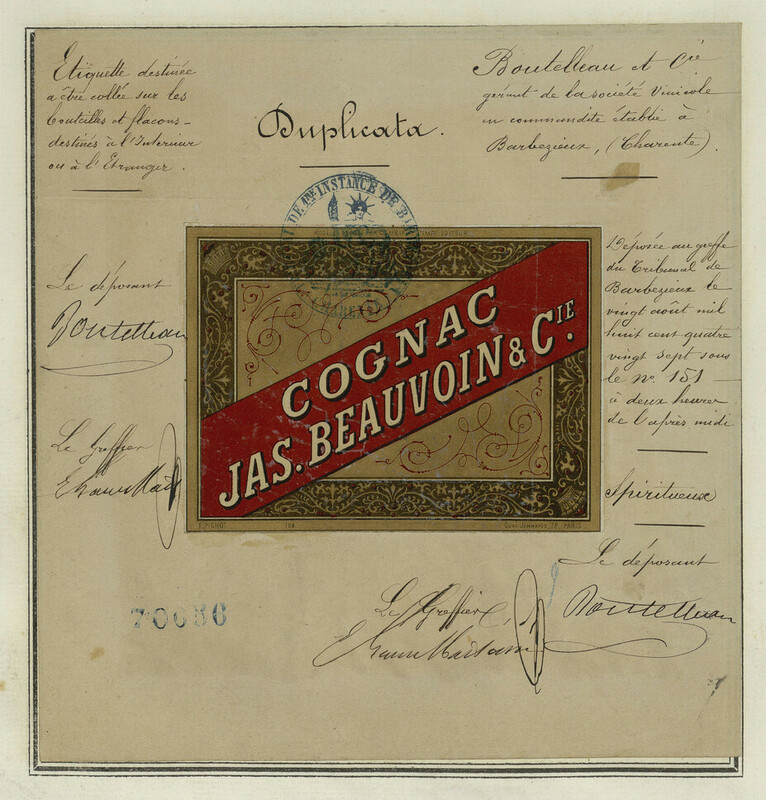 Etiquette destinée
a être collée sur les
bouteilles et flacons
destinés à l'Intérieur
ou à l'Etranger.
Duplicata.
Boutelleau et Cie
gérant de la société Vinicole
en commandite établie à
Barbezieux, (Charente).
DE 1RE INSTANCE DE BARB
COGNAC
JAS. BEAUVOIN & CIE.
E. PICHOT
QUAI JEMMAPES, 72, PARIS
Le déposant
Boutelleau
Le Greffier
Déposée au greffe
du Tribunal de
Barbezieux le
vingt août mil
huit cent quatre
vingt sept sous
le no. 151
à deux heures
de l'après midi
Spiritueux
Le déposant
Boutelleau
Le Greffier
70686